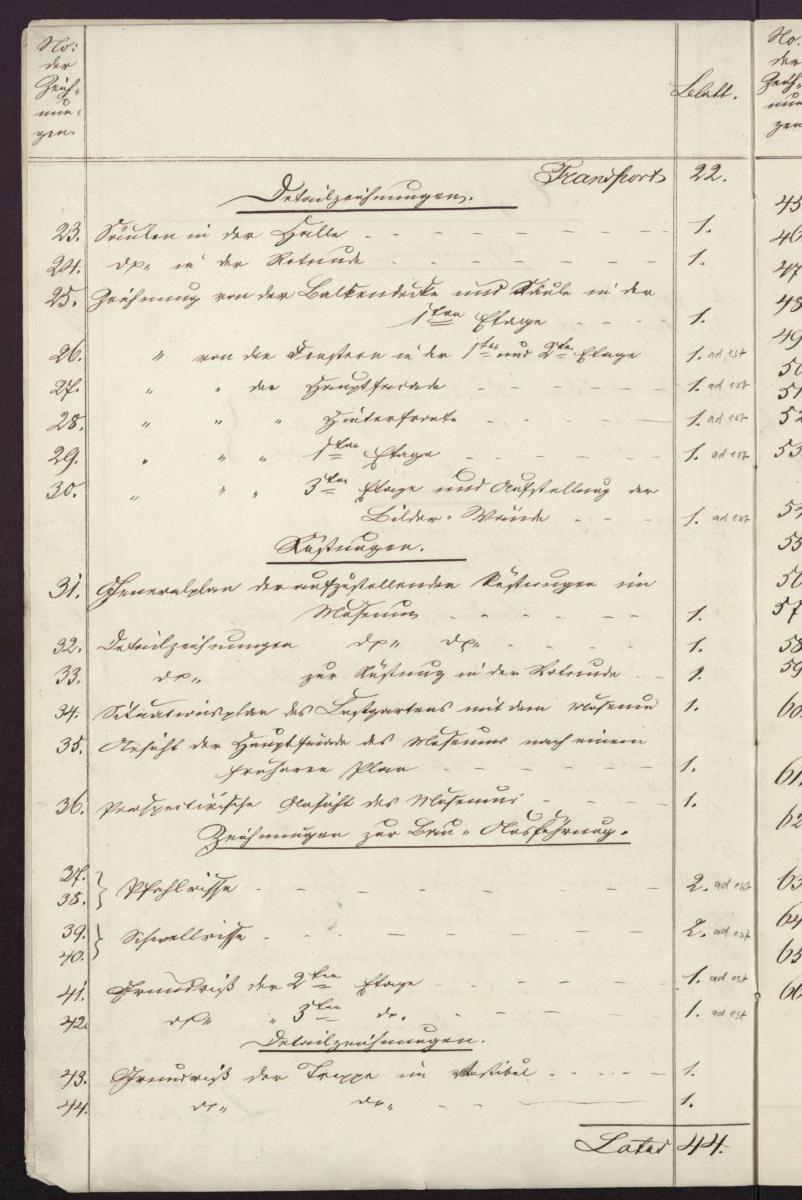 No:
der
Zeich-
nun-
gen.
Blatt.
Transport 22.
Detailzeichnungen.
23. Säulen in der Halle - - - - - - - - 1.
24. do„ in der Rotunde - - - - - - - 1.
25. Zeichnung von der Balkendecke und Säule in der
1ten Etage - - - - 1.
26. „ von den Fenstern in der 1ten und 2ten Etage 1. ad est
27. „ „ der Hauptfacade - - - - - - 1. ad est
28. „ „ „ Hinterfronte - - - - - 1. ad est
29. „ „ „ 1ten Etage - - - - - - 1. ad est
30. „ „ „ 3ten Etage und Aufstellung der
Bilder-Wände - - - 1. ad est
Rüstungen.
31. Generalplan der aufzustellenden Rüstungen im
Museum - - - - - - 1.
32. Detailzeichnungen do„ do„ - - - - - 1.
33. do„ zur Rüstung in der Rotunde - - 1.
34. Situationsplan des Lustgartens mit dem Museum 1.
35. Ansicht der Hauptfacade des Museums nach einem
früheren Plan - - - - - - - 1.
36. Perspectivische Ansicht des Museums - - - - 1.
Zeichnungen zur Bau-Ausführung.
37.
38. } Pfahlrisse - - - - - - - - 2. ad est
39.
40. } Schwellrisse - - - - - - - - 2. ad est
41. Grundriß der 2ten Etage - - - - - - 1. ad est
42. do„ „ 3ten do. - - - - - - 1. ad est
Detailzeichnungen.
43. Grundriß der Treppe im Vestibul - - - - - 1.
44. do„ do„ - - - 1.
Latus 44.
No.
der
Zeich-
nun
gen
45
46
47
48
49
50
51
52
53
54
55
56
57
58
59
60.
61.
62
63
64
65
66